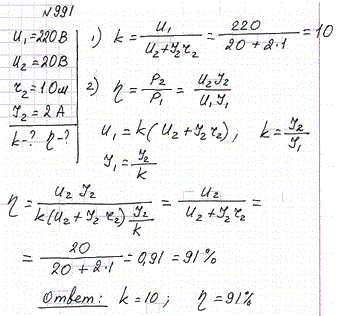 N 991
U₁ = 220 В
U₂ = 20 В
r₂ = 1 Ом
I₂ = 2 А
k - ? η - ?
1) k = U₁ / (U₂ + I₂r₂) = 220 / (20 + 2·1) = 10
2) η = P₂ / P₁ = U₂I₂ / U₁I₁
U₁ = k(U₂ + I₂r₂), k = I₂ / I₁
I₁ = I₂ / k
η = U₂ I₂ / (k(U₂ + I₂ r₂) I₂/k) = U₂ / (U₂ + I₂r₂) =
= 20 / (20 + 2·1) = 0,91 = 91%
Ответ: k = 10; η = 91%